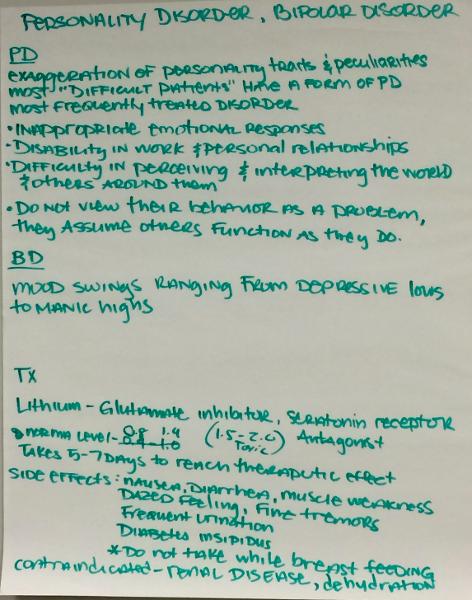 PERSONALITY DISORDER, BIPOLAR DISORDER
PD
EXAGGERATION OF PERSONALITY TRAITS & PECULIARITIES
MOST "DIFFICULT PATIENTS" HAVE A FORM OF PD
MOST FREQUENTLY TREATED DISORDER
• INAPPROPRIATE EMOTIONAL RESPONSES
• DISABILITY IN WORK & PERSONAL RELATIONSHIPS
• DIFFICULTY IN PERCEIVING & INTERPRETING THE WORLD
& OTHERS AROUND THEM
• DO NOT VIEW THEIR BEHAVIOR AS A PROBLEM,
THEY ASSUME OTHERS FUNCTION AS THEY DO.
BD
MOOD SWINGS RANGING FROM DEPRESSIVE LOWS
TO MANIC HIGHS
TX
LITHIUM - GLUTAMATE INHIBITOR, SERATONIN RECEPTOR
NORMAL LEVEL - 0.8 1.4 (1.5-2.0) ANTAGONIST
TOXIC
TAKES 5-7 DAYS TO REACH THERAPUTIC EFFECT
SIDE EFFECTS: NAUSEA, DIARRHEA, MUSCLE WEAKNESS
DAZED FEELING, FINE TREMORS
FREQUENT URINATION
DIABETES INSIPIDUS
* DO NOT TAKE WHILE BREAST FEEDING
CONTRAINDICATED - RENAL DISEASE, DEHYDRATION